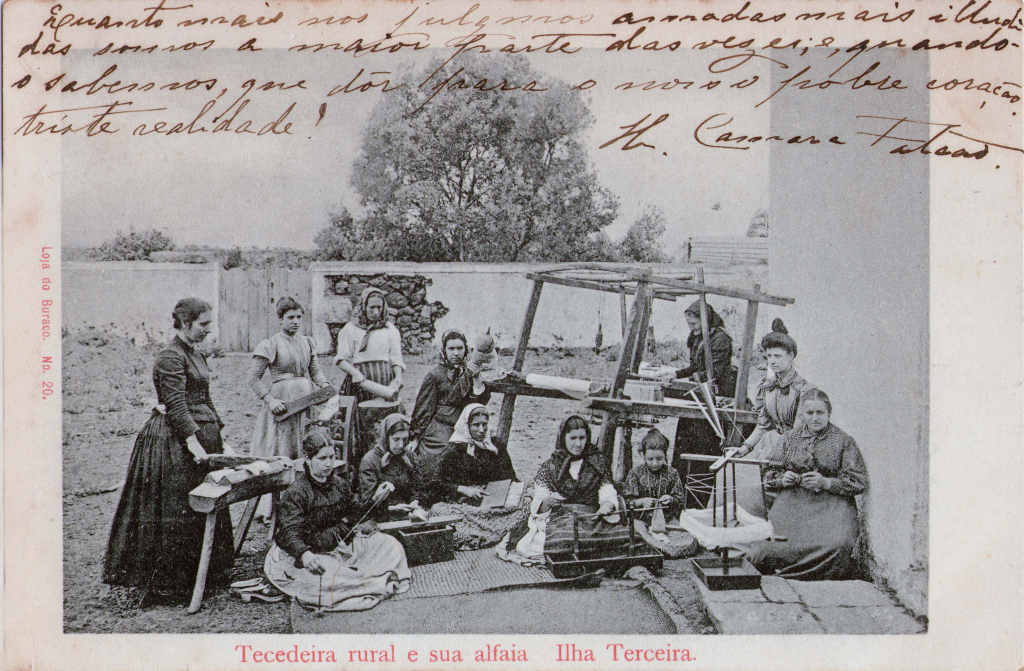 Quanto mais nos julgamos amadas mais illudi-
das somos a maior parte das vezes; e, quando
o sabemos, que dôr para o nosso pobre coração,
triste realidade!
H. Camara Falcão.
Loja do Buraco. No. 20.
Tecedeira rural e sua alfaia Ilha Terceira.